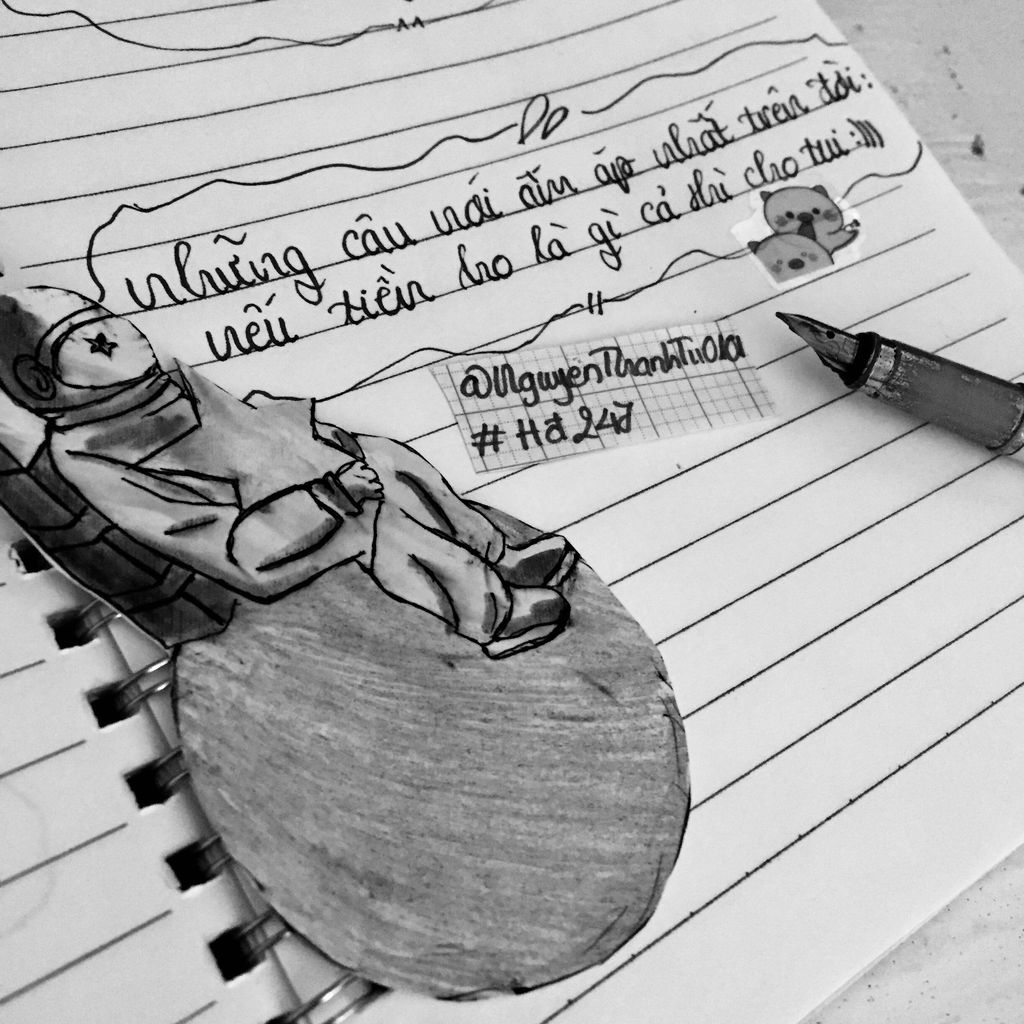 những câu nói ấm áp nhất trên đời:
nếu tiền ko là gì cả thì cho tui :)))
@NguyenThanhTu01a
# Hđ 247